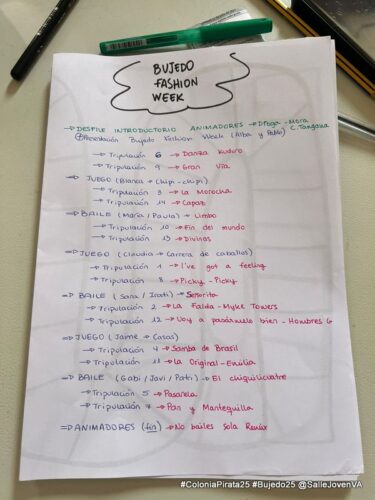 BUJEDO
FASHION
WEEK
→ DESFILE INTRODUCTORIO ANIMADORES → Droga - Mora
C. Tangana
Presentación Bujedo Fashion Week (Alba y Pablo)
→ Tripulación 6 → Danza Kuduro
→ Tripulación 9 → Gran Vía
⇒ JUEGO (Blanca → Chipi-chipi)
→ Tripulación 3 → La Morocha
→ Tripulación 14 → Capaz
⇒ BAILE (María / Paula) → Limbo
→ Tripulación 10 → Fin del mundo
→ Tripulación 13 → Divinas
⇒ JUEGO (Claudia → Carrera de caballos)
→ Tripulación 1 → I've got a feeling
→ Tripulación 8 → Picky-Picky
⇒ BAILE (Sara / Irati) → Señorita
→ Tripulación 2 → La Falda - Myke Towers
→ Tripulación 12 → Voy a pasármelo bien - Hombres G
⇒ JUEGO (Jaime → Casas)
→ Tripulación 4 → Samba de Brasil
→ Tripulación 11 → La Original - Emilia
⇒ BAILE (Gabi / Javi / Patri) → El chiquilicuatre
→ Tripulación 5 → Pasarela
→ Tripulación 7 → Pan y Mantequilla
⇒ ANIMADORES (fin) → No bailes sola Remix
#ColoniaPirata25 #Bujedo25 @SalleJovenVA